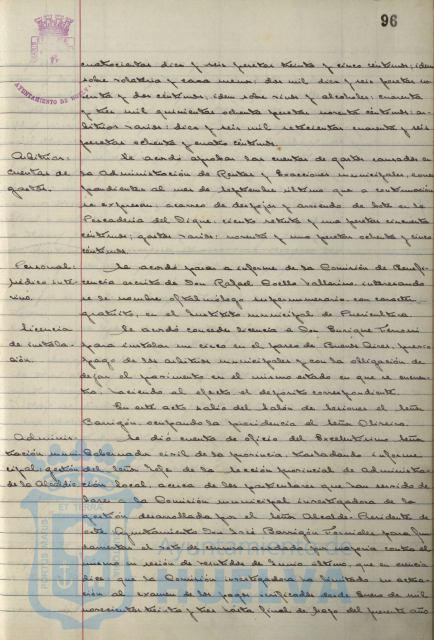 96
AYUNTAMIENTO DE HUELVA
cuatrocientas diez y seis pesetas treinta y cinco céntimos; idem
sobre volatería y caza menor: dos mil diez y seis pesetas no-
venta y dos céntimos; idem sobre vinos y alcoholes: cuarenta
y tres mil quinientas ochenta pesetas noventa céntimos; ar-
bitrios varios: diez y seis mil setecientas cuarenta y seis
pesetas ochenta y cuatro céntimos.
Arbitrios: Se acordó aprobar las cuentas de gastos causados en
cuentas de la Administración de Rentas y Exacciones municipales, corres-
gastos. pondientes al mes de Septiembre último que a continuación
se expresan: acarreo de despojos y arriendo de bote en la
Pescadería del Dique: ciento setenta y una pesetas cincuenta
céntimos; gastos varios: noventa y una pesetas ochenta y cinco
céntimos.
Personal: Se acordó pasar a informe de la Comisión de Benefi-
médico inte- cencia escrito de Don Rafael Coello Vallarino, interesando
rino. se se nombre oftalmólogo supernumerario con carácter
gratuito, en el Instituto municipal de Puericultura.
Licencia Se acordó conceder licencia a Don Enrique
de instala- para instalar un circo en el paseo de Buenos Aires, previo
ción. pago de los arbitrios municipales y con la obligación de
dejar el pavimento en el mismo estado en que se encuen-
tra, haciendo al efecto el depósito correspondiente.
En este acto salió del Salón de sesiones el señor
Barrigón, ocupando la presidencia el señor Oliveira.
Adminis- Se dió cuenta de oficio del Excelentísimo Señor
tración muni- Gobernador civil de la provincia, trasladando informe
cipal: gestión del señor Jefe de la Sección provincial de Administra-
de la Alcaldía ción local, acerca de los particulares que han servido de
base a la Comisión municipal investigadora de la
gestión desarrollada por el señor Alcalde Presidente de
este Ayuntamiento Don José Barrigón Fornieles para fun-
damentar el voto de censura acordado por mayoría contra el
mismo en sesión de veintidos de Junio último, que en esencia
dice que la Comisión investigadora ha limitado su actua-
ción al examen de los pagos verificados desde Enero de mil
novecientos treinta y tres hasta final de Mayo del presente año
PORTUS MARIS ET TERRAE
Ayuntamiento de
HUELVA